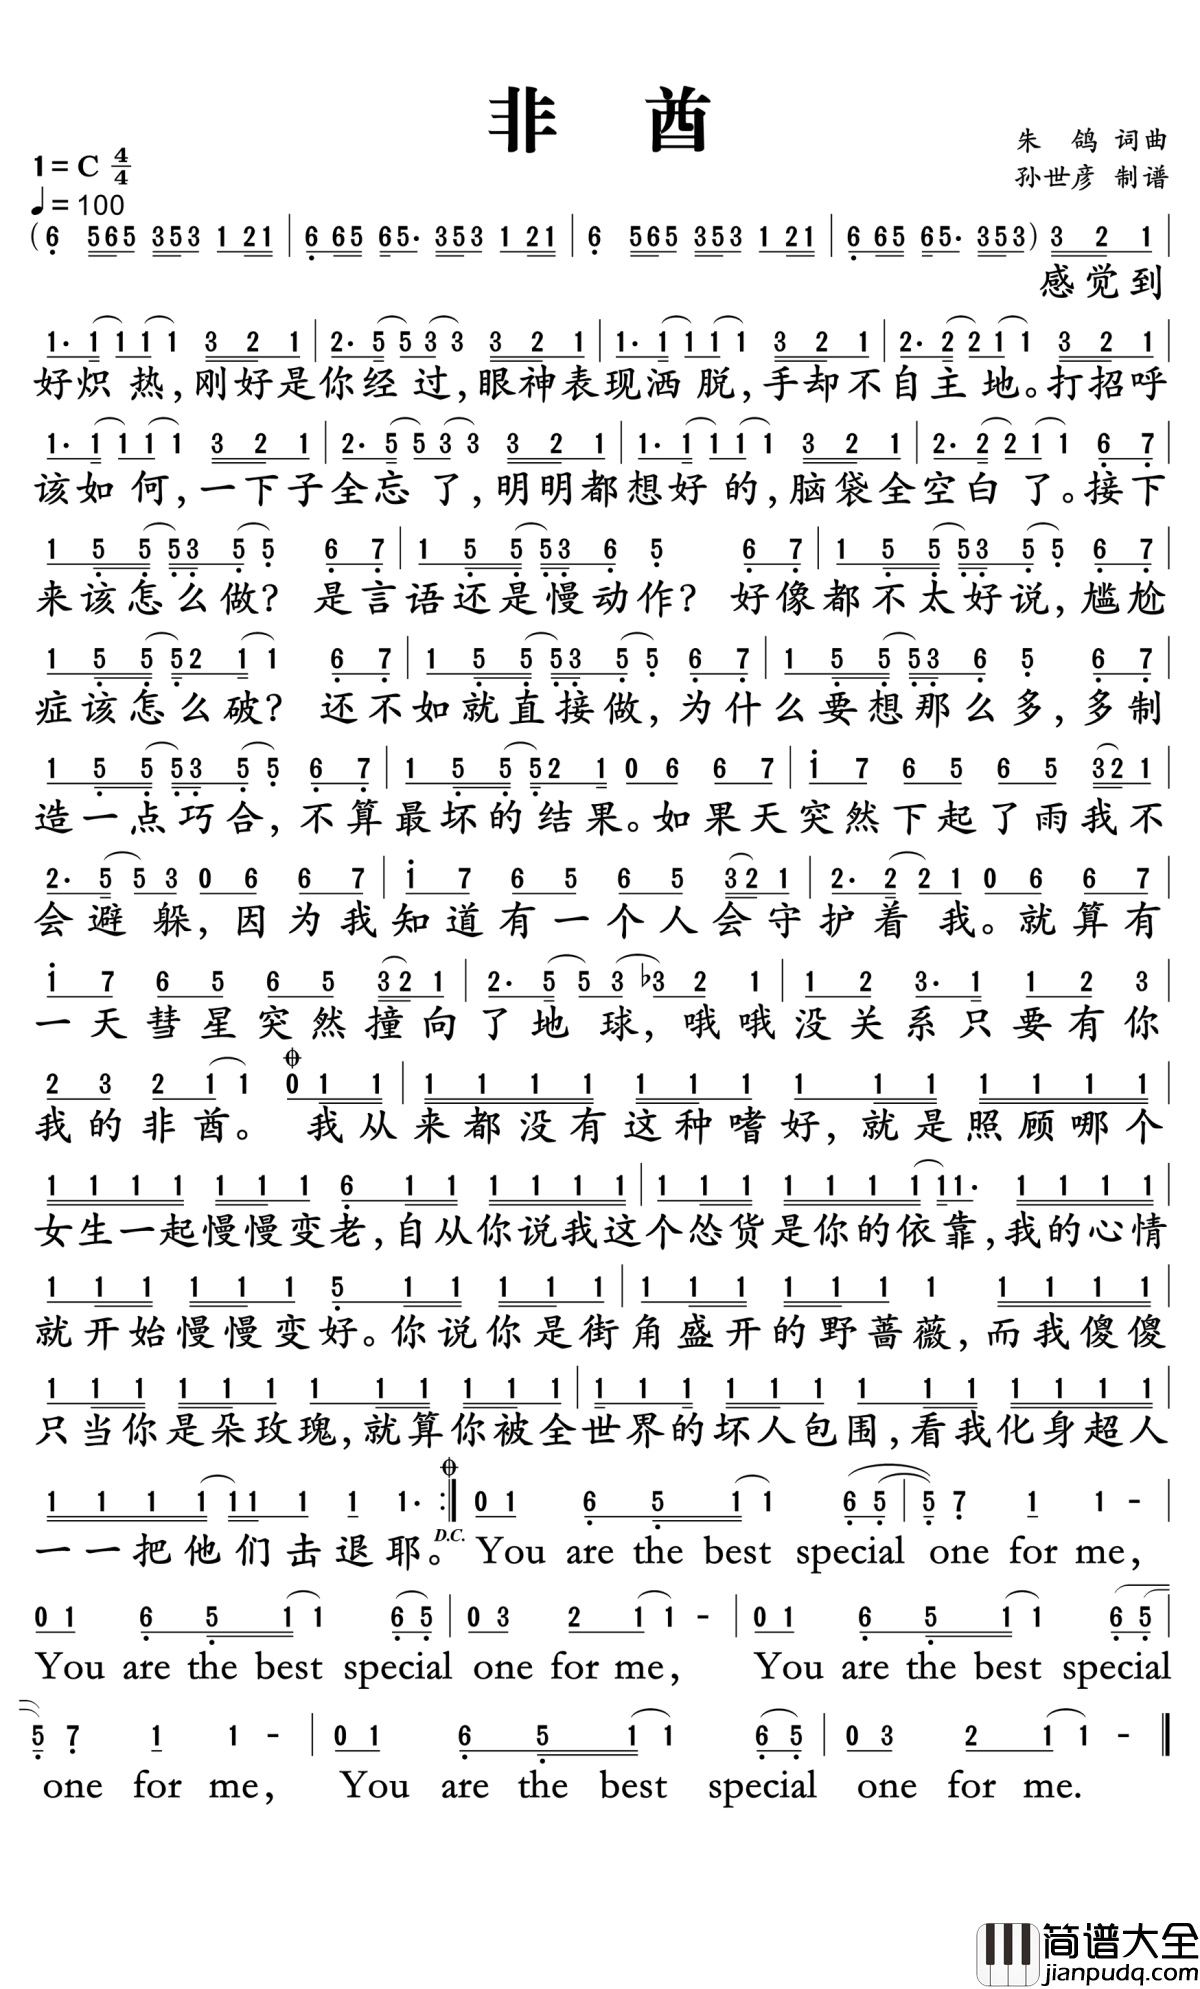 非 酋
朱 鸽 词曲
孙世彦 制谱
1=C 4/4
♩=100
(6 565 353 1 21 | 6 65 65· 353 1 21 | 6 565 353 1 21 | 6 65 65· 353) 3 2 1 |
感觉到
1· 1 1 1 1 3 2 1 | 2· 5 5 3 3 3 2 1 | 1· 1 1 1 1 3 2 1 | 2· 2 2 1 1 3 2 1 |
好炽 热,刚好是你经 过,眼神表现洒 脱,手却不自主 地。打招呼
1· 1 1 1 1 3 2 1 | 2· 5 5 3 3 3 2 1 | 1· 1 1 1 1 3 2 1 | 2· 2 2 1 1 6 7 |
该如 何,一下子全忘 了,明明都想好 的,脑袋全空白 了。接下
1 5 5 53 5 5 6 7 | 1 5 5 53 6 5 6 7 | 1 5 5 53 5 5 6 7 |
来该怎么做? 是言语还是慢动作? 好像都不太好说,尴尬
1 5 5 52 1 1 6 7 | 1 5 5 53 5 5 6 7 | 1 5 5 53 6 5 6 7 |
症该怎么破? 还不如就直接做,为什么要想那么多,多制
1 5 5 53 5 5 6 7 | 1 5 5 52 1 0 6 6 7 | 1 7 6 5 6 5 32 1 |
造一点巧合,不算最坏的结果。如果天突然下起了雨我不
2· 5 5 3 0 6 6 7 | 1 7 6 5 6 5 32 1 | 2· 2 2 1 0 6 6 7 |
会避 躲,因为我知道有一个人会守护着 我。就算有
1 7 6 5 6 5 32 1 | 2· 5 5 3 ♭3 2 1 | 1 2 3· 1 1 2 3
一天彗星突然撞向了地 球,哦哦没关系只要有你
2 3 2 1 1 0 1 1 | 1 1 1 1 1 1 1 1 1 1 1 1 1 1 |
我的非酋。 我从来都没有这种嗜好,就是照顾哪个
1 1 1 1 1 1 1 6 1 1 1 1 1 1 | 1 1 1 1 1 1 1 11· 1 1 1 1 |
女生一起慢慢变老,自从你说我这个怂货是你的依靠,我的心情
1 1 1 1 1 1 5 1 1 1 1 1 | 1 1 1 1 1 1 1 1 1 1 1 1 |
就开始慢慢变好。你说你是街角盛开的野蔷薇,而我傻傻
1 1 1 1 1 1 1 1 1 1 1 1 | 1 1 1 1 1 1 1 1 1 1 1 1 |
只当你是朵玫瑰,就算你被全世界的坏人包围,看我化身超人
1 1 1 1 11 1 1 1· :| 0 1 6 5 1 1 6 5 | 5 7 1 1 - |
一一把他们击退耶。D.C. You are the best special one for me,
0 1 6 5 1 1 6 5 | 0 3 2 1 1 - | 0 1 6 5 1 1 6 5 |
You are the best special one for me, You are the best special
5 7 1 1 - | 0 1 6 5 1 1 6 5 | 0 3 2 1 1 - ‖
one for me, You are the best special one for me.
简谱大全
jianpudq.com